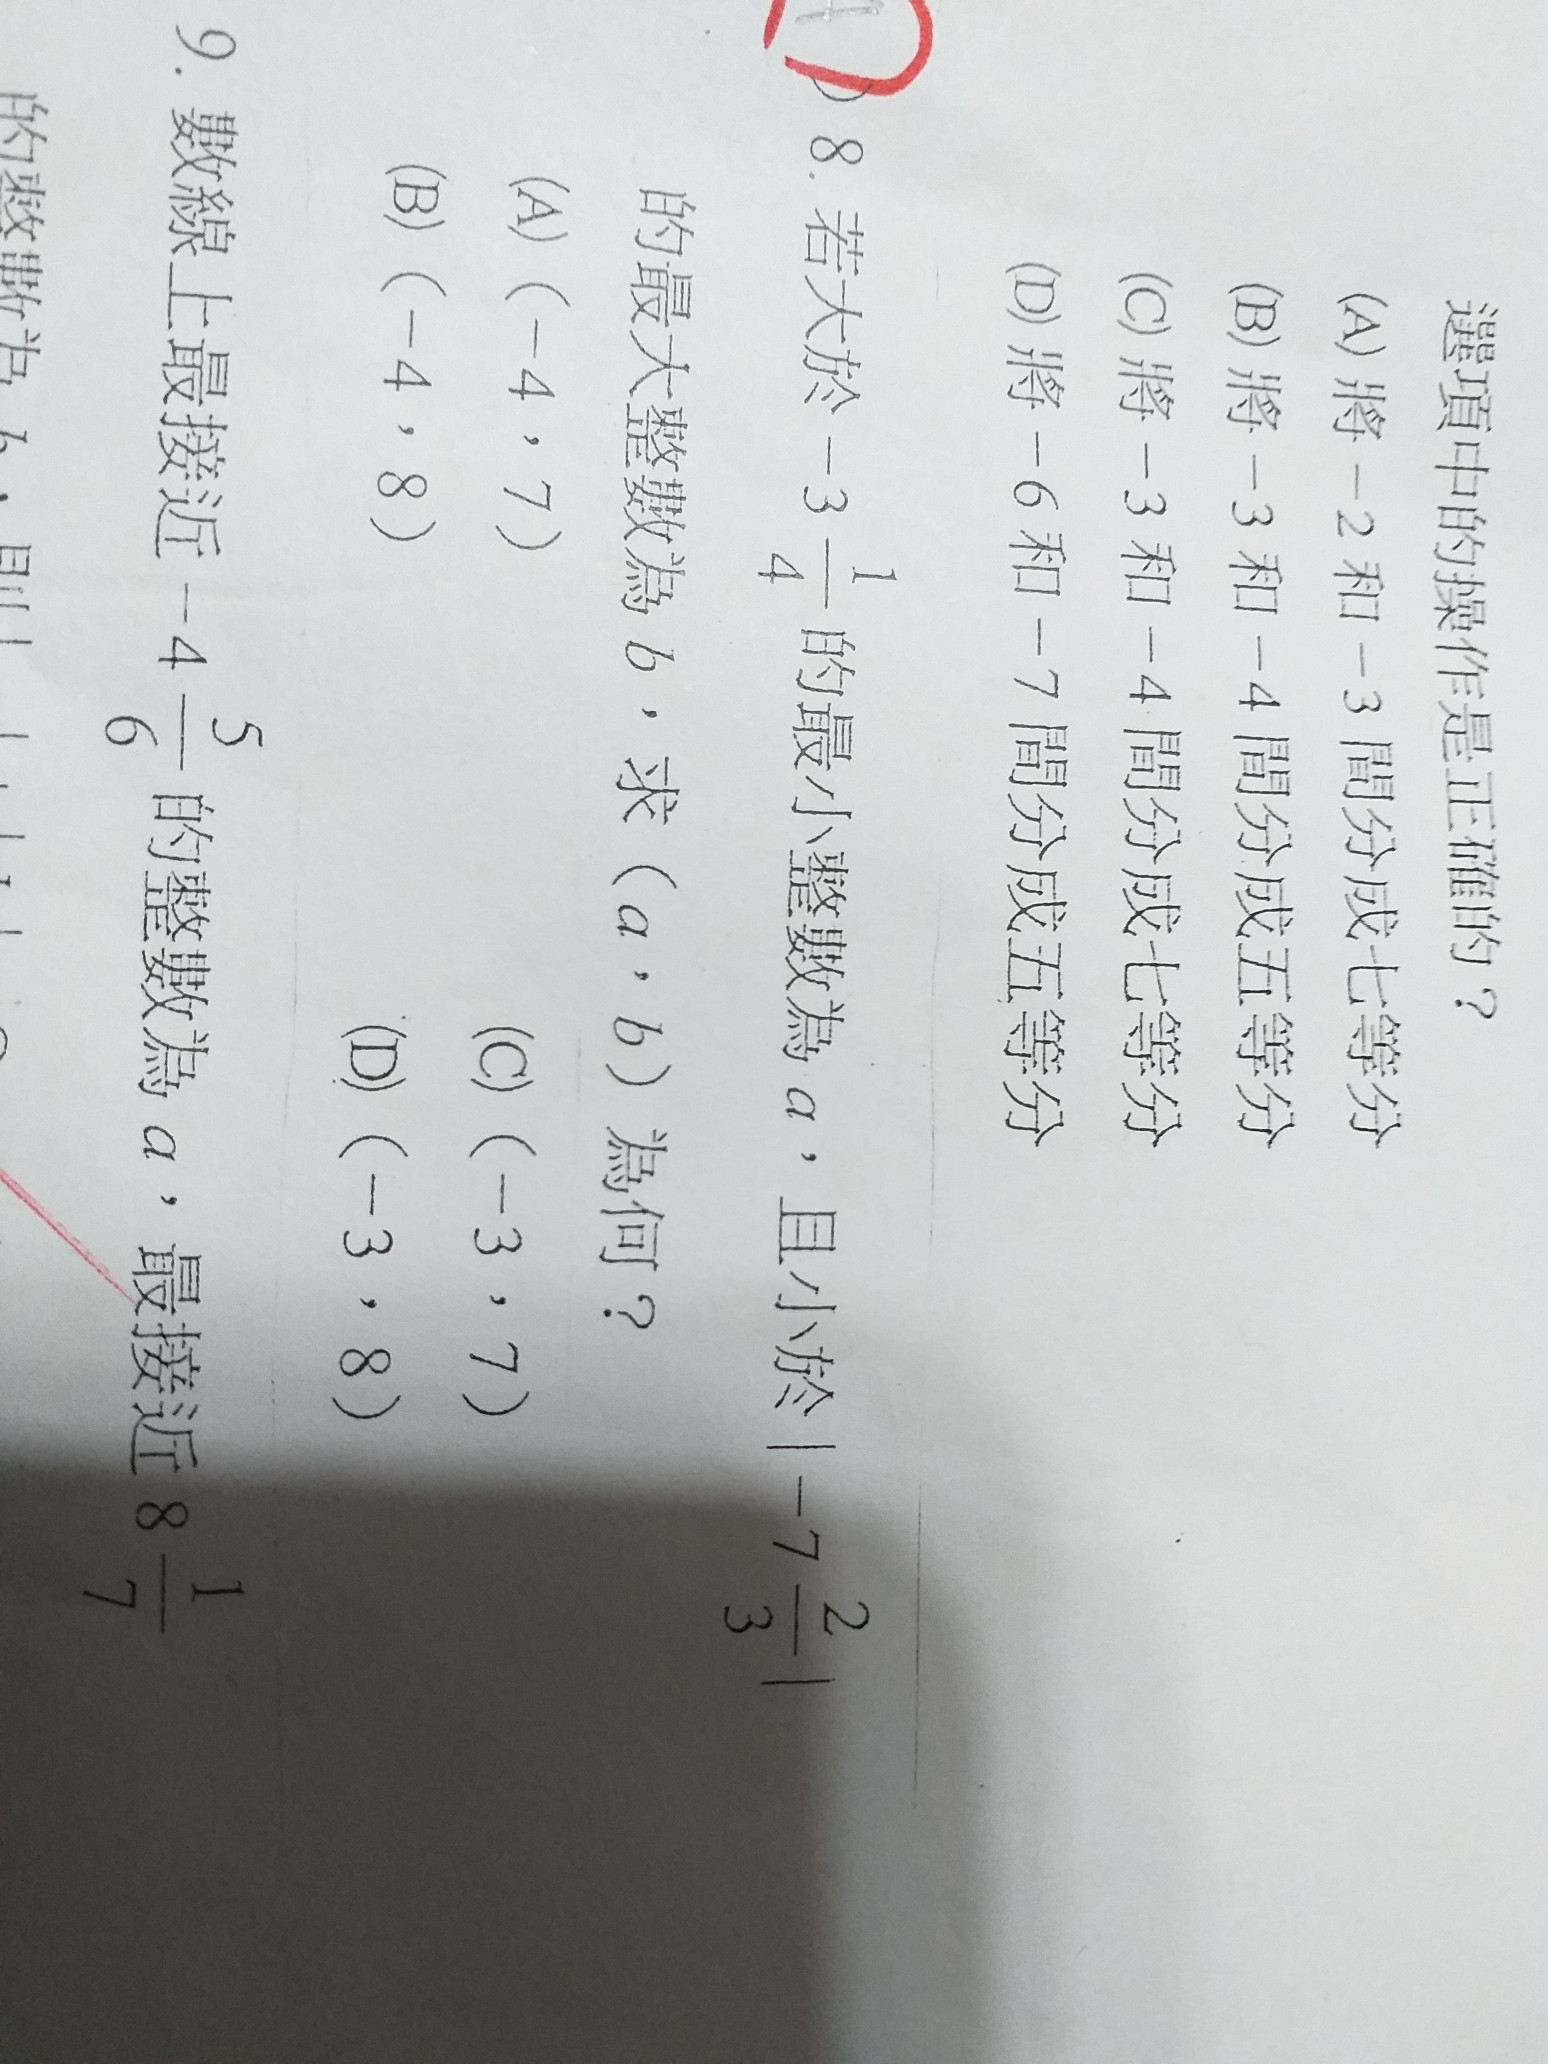 選項中的操作是正確的？
(A) 將 −2 和 −3 間分成七等分
(B) 將 −3 和 −4 間分成五等分
(C) 將 −3 和 −4 間分成七等分
(D) 將 −6 和 −7 間分成五等分
) 8. 若大於 −3 1/4 的最小整數為 a，且小於 | −7 2/3 |
的最大整數為 b，求（a，b）為何？
(A)（−4，7） (C)（−3，7）
(B)（−4，8） (D)（−3，8）
9. 數線上最接近 −4 5/6 的整數為 a，最接近 8 1/7
的整數為 b，則